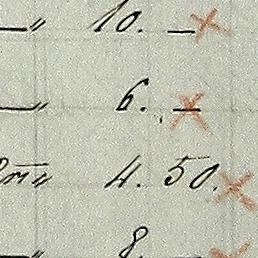 — " 10. —
— " 6. —
" 4. 50.
— " 8. —